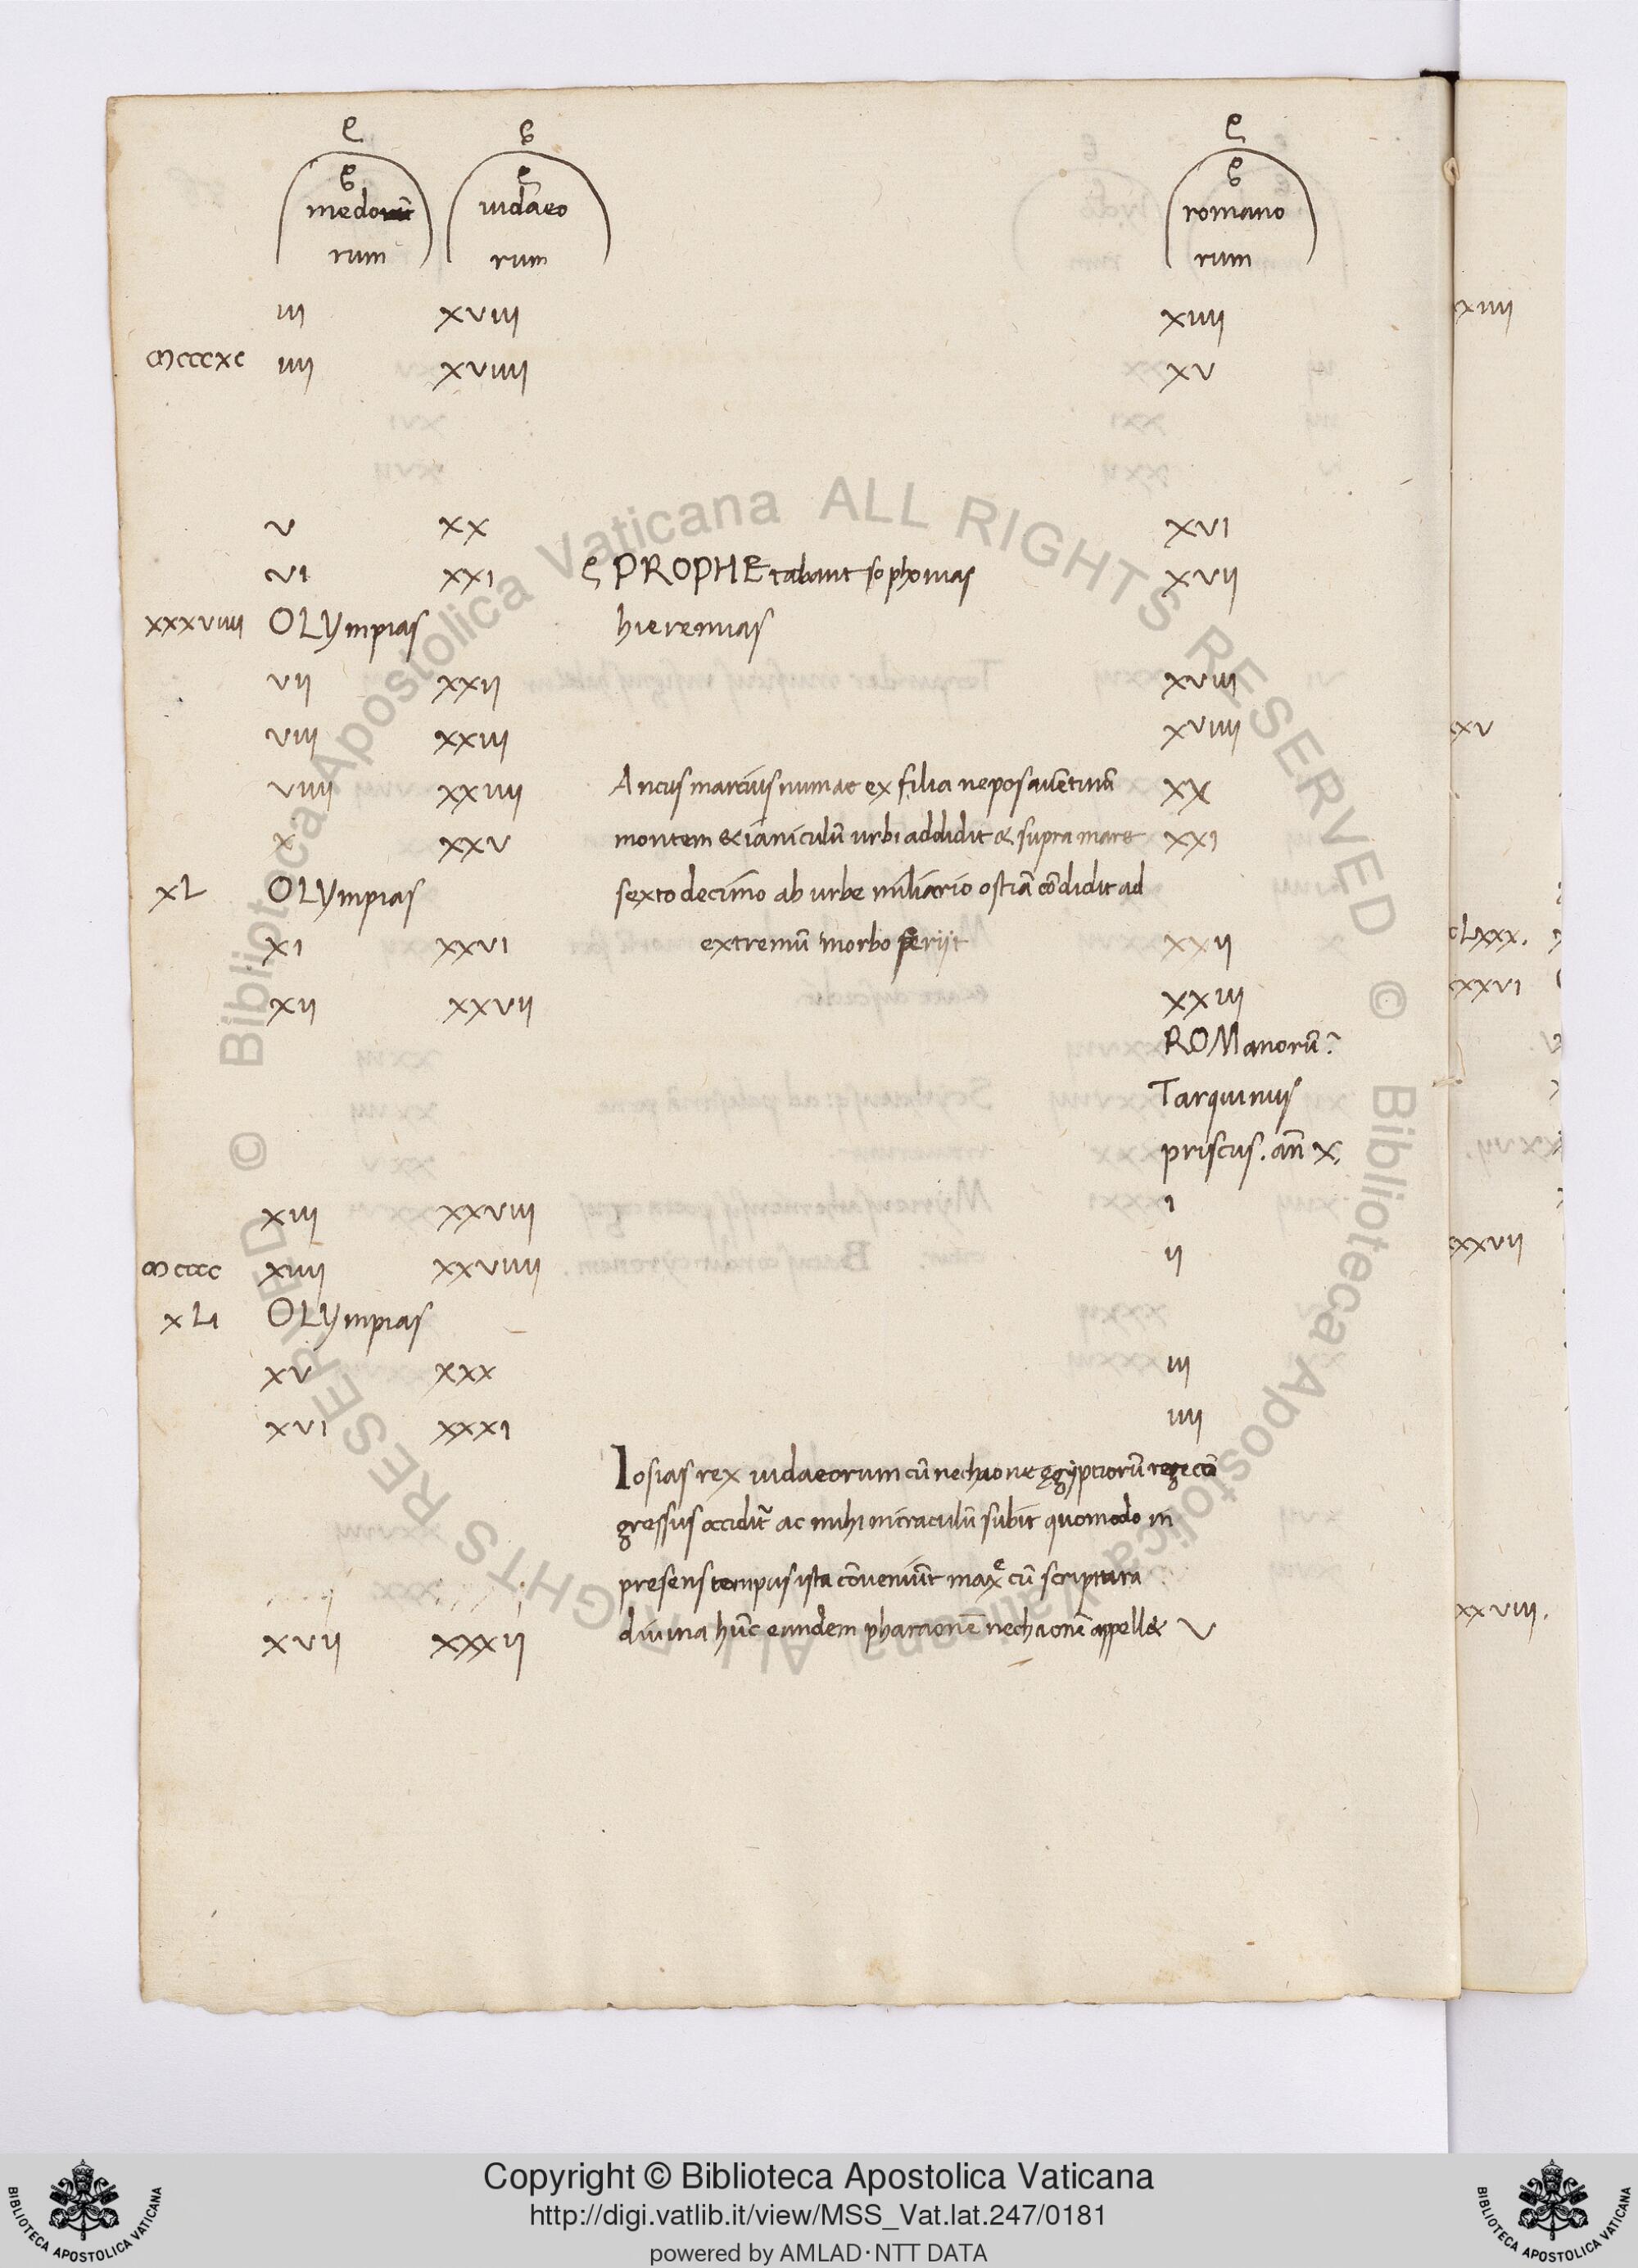 medorum iudaeo romano
rum rum rum
iii xviii xiiii
mcccxc iiii xviiii xv
v xx xvi
vi xxi PROPHEtabant sophonias xvii
xxxviiii OLYmpias hieremias
vii xxii xviii
viii xxiii xviiii
viiii xxiiii Ancus marcius numae ex filia nepos auētinū xx
x xxv montem & ianiculū urbi addidit & supra mare xxi
xL OLYmpias sexto decimo ab urbe miliario ostiā cōdidit ad
xi xxvi extremū morbo periit xxii
xii xxvii xxiii
ROManorū
Tarquinius
priscus . añ x
xiii xxviii i
mcccc xiiii xxviiii ii
xLi OLYmpias
xv xxx iii
xvi xxxi iiii
Iosias rex iudaeorum cū nechaone ęgyptiorū rege cō
gressus occidit ac mihi miraculū subit quomodo in
presens tempus ista cōueniūt maxe cū scriptura
xvii xxxii diuina hūc eundem pharaonē nechaonē appell& v
xxiiii
xxv
cLxxx.
xxxvi
xxvii
xxviii.
© Biblioteca Apostolica Vaticana ALL RIGHTS RESERVED © Biblioteca Apostolica Vaticana ALL RIGHTS RESERVED
Copyright © Biblioteca Apostolica Vaticana
http://digi.vatlib.it/view/MSS_Vat.lat.247/0181
powered by AMLAD·NTT DATA
BIBLIOTECA APOSTOLICA VATICANA
BIBLIOTECA APOSTOLICA VATICANA